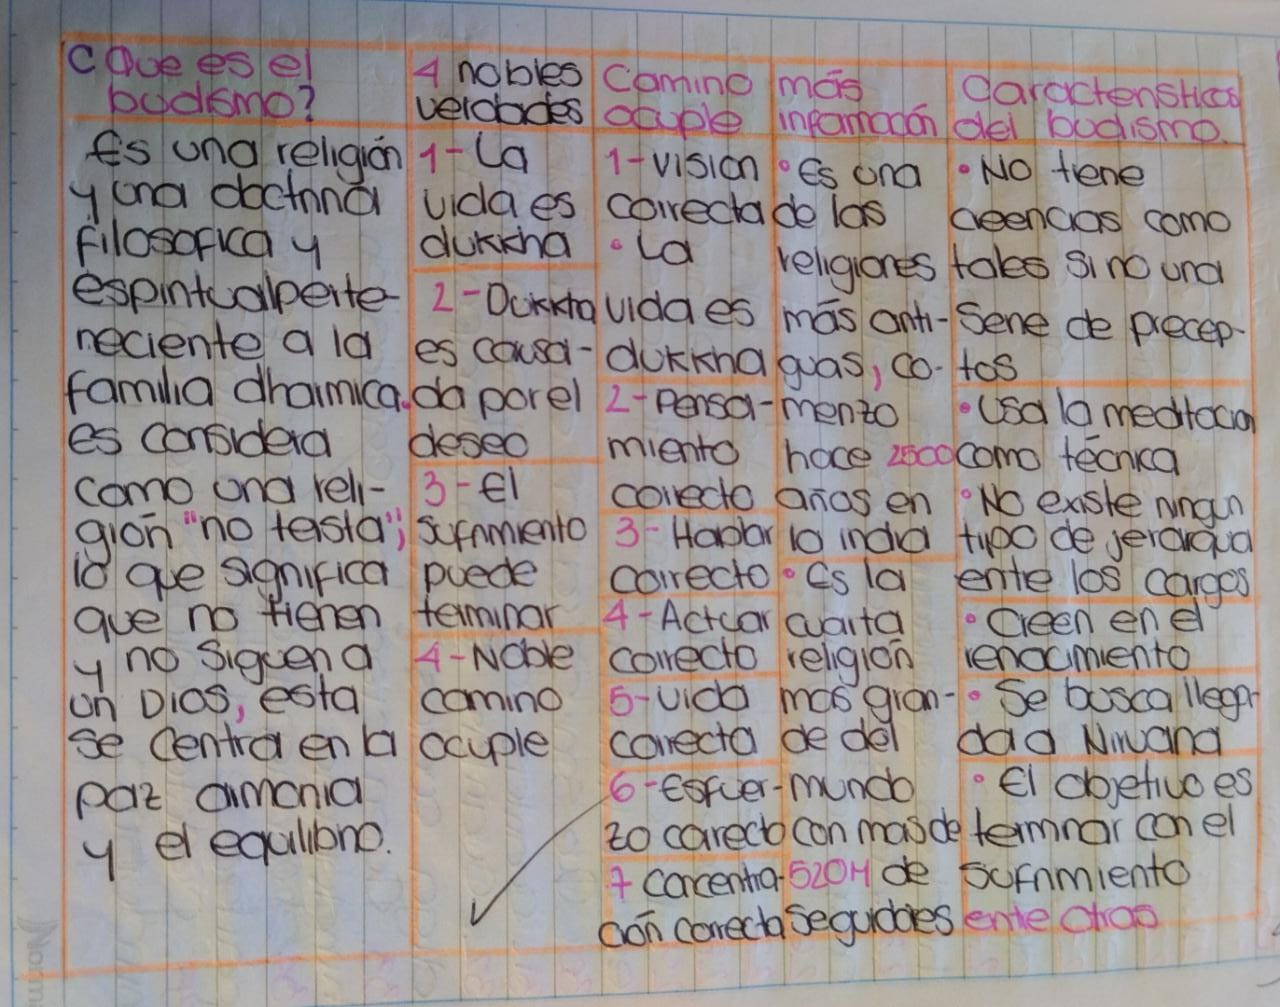 ¿Que es el
budismo?
Es una religión
y una doctrina
filosofica y
espiritual perte-
neciente a la
familia dharmica.
es considera
como una reli-
gión "no teista";
lo que significa
que no tienen
y no siguen a
un Dios, esta
se centra en la
paz armonia
y el equilibrio.
4 nobles
verdades
1- La
vida es
dukkha
2- Dukkha
es causa-
da por el
deseo
3- El
sufrimiento
puede
terminar
4- Noble
camino
ocuple
Camino
ocuple
1- vision
correcta
• La
vida es
dukkha
2- Pensa-
miento
correcto
3- Hablar
correcto
4- Actuar
correcto
5- vida
correcta
6- Esfuer-
zo correcto
7 concentra-
ción correcta
más
información
• Es una
de las
religiones
más anti-
guas, co-
menzo
hace 2500
años en
la india
• Es la
cuarta
religión
mas gran-
de del
mundo
con mas de
520M de
seguidores
Caracteristicas
del budismo.
• No tiene
creencias como
tales si no una
serie de precep-
tos
• Usa la meditacion
como técnica
• No existe ningun
tipo de jerarquia
ente los cargos
• Creen en el
renacimiento
• Se busca llegar
da a Nirvana
• El objetivo es
terminar con el
sufrimiento
ente otras